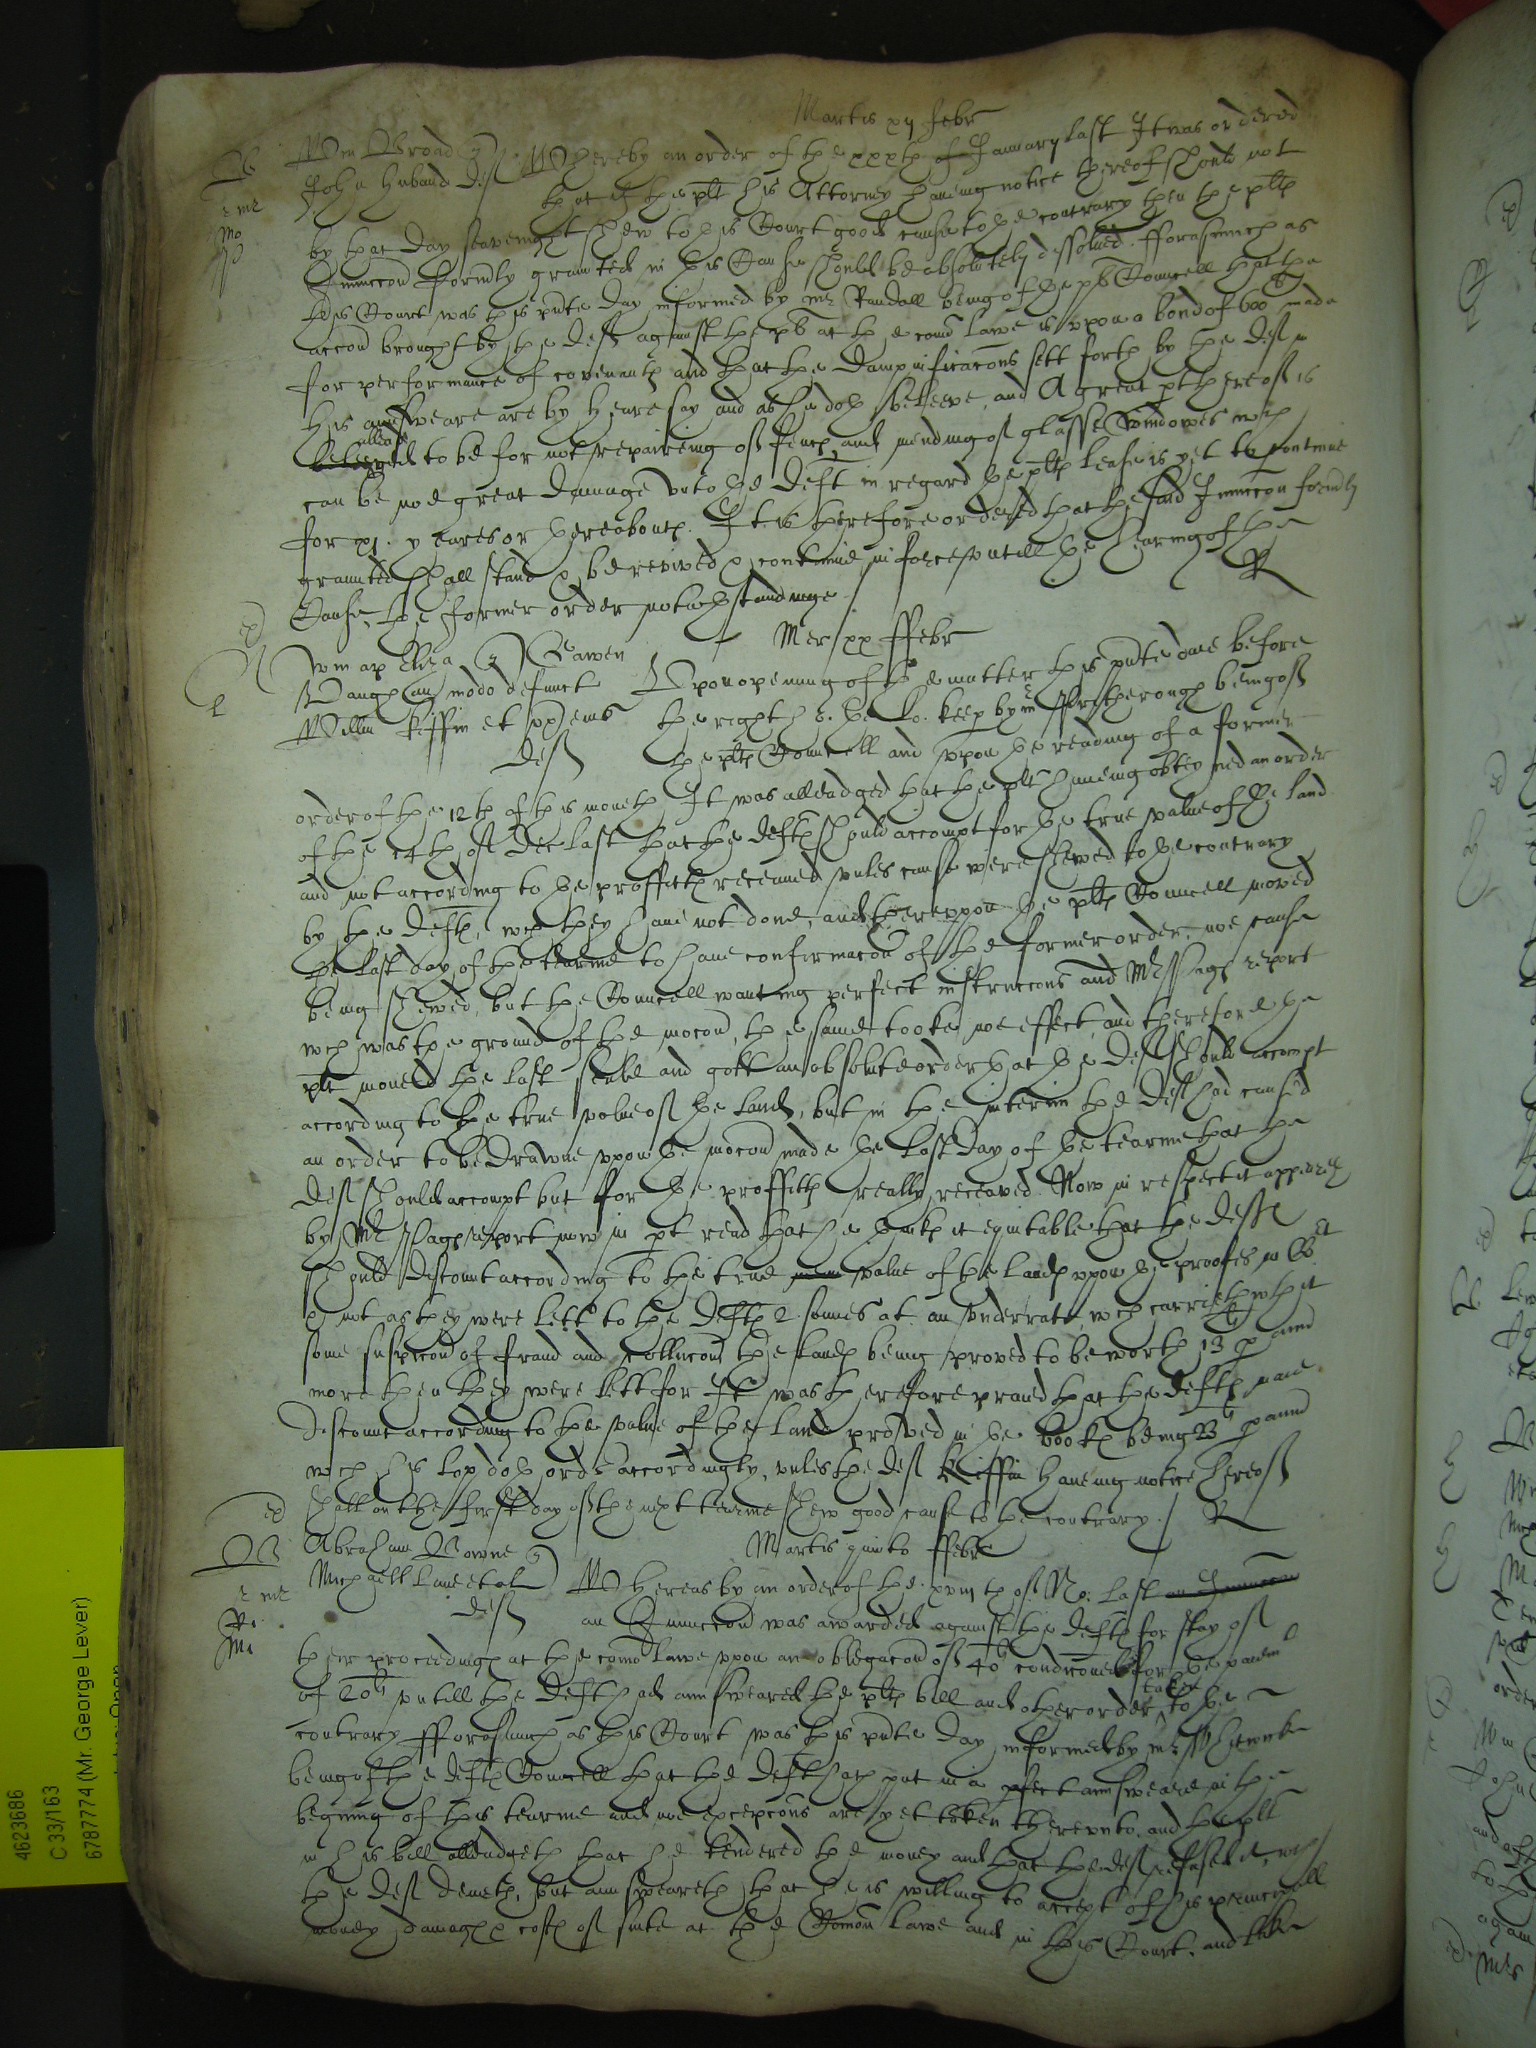 Martis xij Febr
Wm Broad q Whereby an order of the xxxth of January last It was ordered
John Huband def that if the plt his Attorney haueing notice thereof should not
by that day seavenight shew to this Court good cause to the contrary then the plts
Iniunccon formerly graunted in this Cause should be absolutely dissolued. Fforasmuch as
this Court was this pnte day informed by mr Randall being of the pts Councell that the
accon brought by the deft against the pt at the comon lawe is vpon a bond of 600li made
for performance of covenants and that the dampnificacons sett forth by the deft in
his answeare are by hearesay and as he doth beleeve, and A great pt thereof is
alleadged to be for not repaireing of fences and mending of glasse windowes wch
can be noe great damage vnto the deft in regard the plts lease is yet to continue
for xj. yeares or thereabouts. It is therefore ordered that the said Iniunccon formerly
graunted shall stand & be revived & continue in force vntill the hearing of the
Cause, the former order notwithstandinge.
R
Mer xx Ffebr
Wm ap Eliza q Gawen
Vaughan modo defunct Vpon opening of the matter this pnte daie before
Willm Kiffin et vx ems the right ho. the Lo. keep by mr Ffitherough being of
def the plts Councell and vpon the reading of a former
order of the 12th of this moneth It was alleadged that the plt haueing obteyned an order
of the 14th of Dec last that the defts should accompt for the true value of the land
and not according to the proffitts receaued vnles cause were shewed to the contrary
by the defts, wch they haue not done, and therevpon the plts Councell moved
the last day of the tearme to haue confirmacon of the former order, noe cause
being shewed, but the Councell wanting perfect instruccons and Mr Pages report
wch was the ground of the mocon, the same tooke noe effect, and therefore the
plt moued the last seale and gott an absolute order that the deft should accompt
according to the true value of the land, but in the interim the deft had caused
an order to be drawne vpon the mocon made the last day of the tearme that the
deft should accompt but for the proffitts really receaved. Now in respect it appeareth
by Mr Pages report now in pt read that he thinks it equitable that the defts
should discount according to the true value of the lands vpon the proofes in Ct
& not as they were lett to the defts 2 sonnes at an vnderrate, wch carrieth wth it
some suspicon of fraud and collucon the lands being proved to be worth 13li p annu
more then they were lett for It was therefore praied that the defts maie
discount according to the value of the land proved in the bookes being 33li p annu
wch his lop doth order accordingly, vnles the deft Kiffin haueing notice thereof
shall on the first day of the next tearme shew good cause to the contrary.
R
Martis quinto Ffebr
Abraham Bowne q
Michaell Lane et al Whereas by an order of the xviijth of No: last an Iniunccon
defts an Iniunccon was awarded against the defts for stay of
their proceedings at the comon lawe vpon an obligacon of 40li condiconed for the paiemt
of 20li vntill the defts had answeared the plts bill and other order taken to the
contrary Fforasmuch as this Court was this pnte day informed by mr Whitwick
being of the defts Councell that the deft hath put in a pfect answeare in the
begining of this tearme and noe excepcons are yet taken therevnto, and the plt
in his bill alleadgeth that he tendered the money and that the deft refused it, wch
the deft denieth, but answeareth that he is willing to accept of his principall
money damages & costs of suite at the Comon lawe and in this Court. and like
4623686
C 33/163
6787774 (Mr. George Lever)